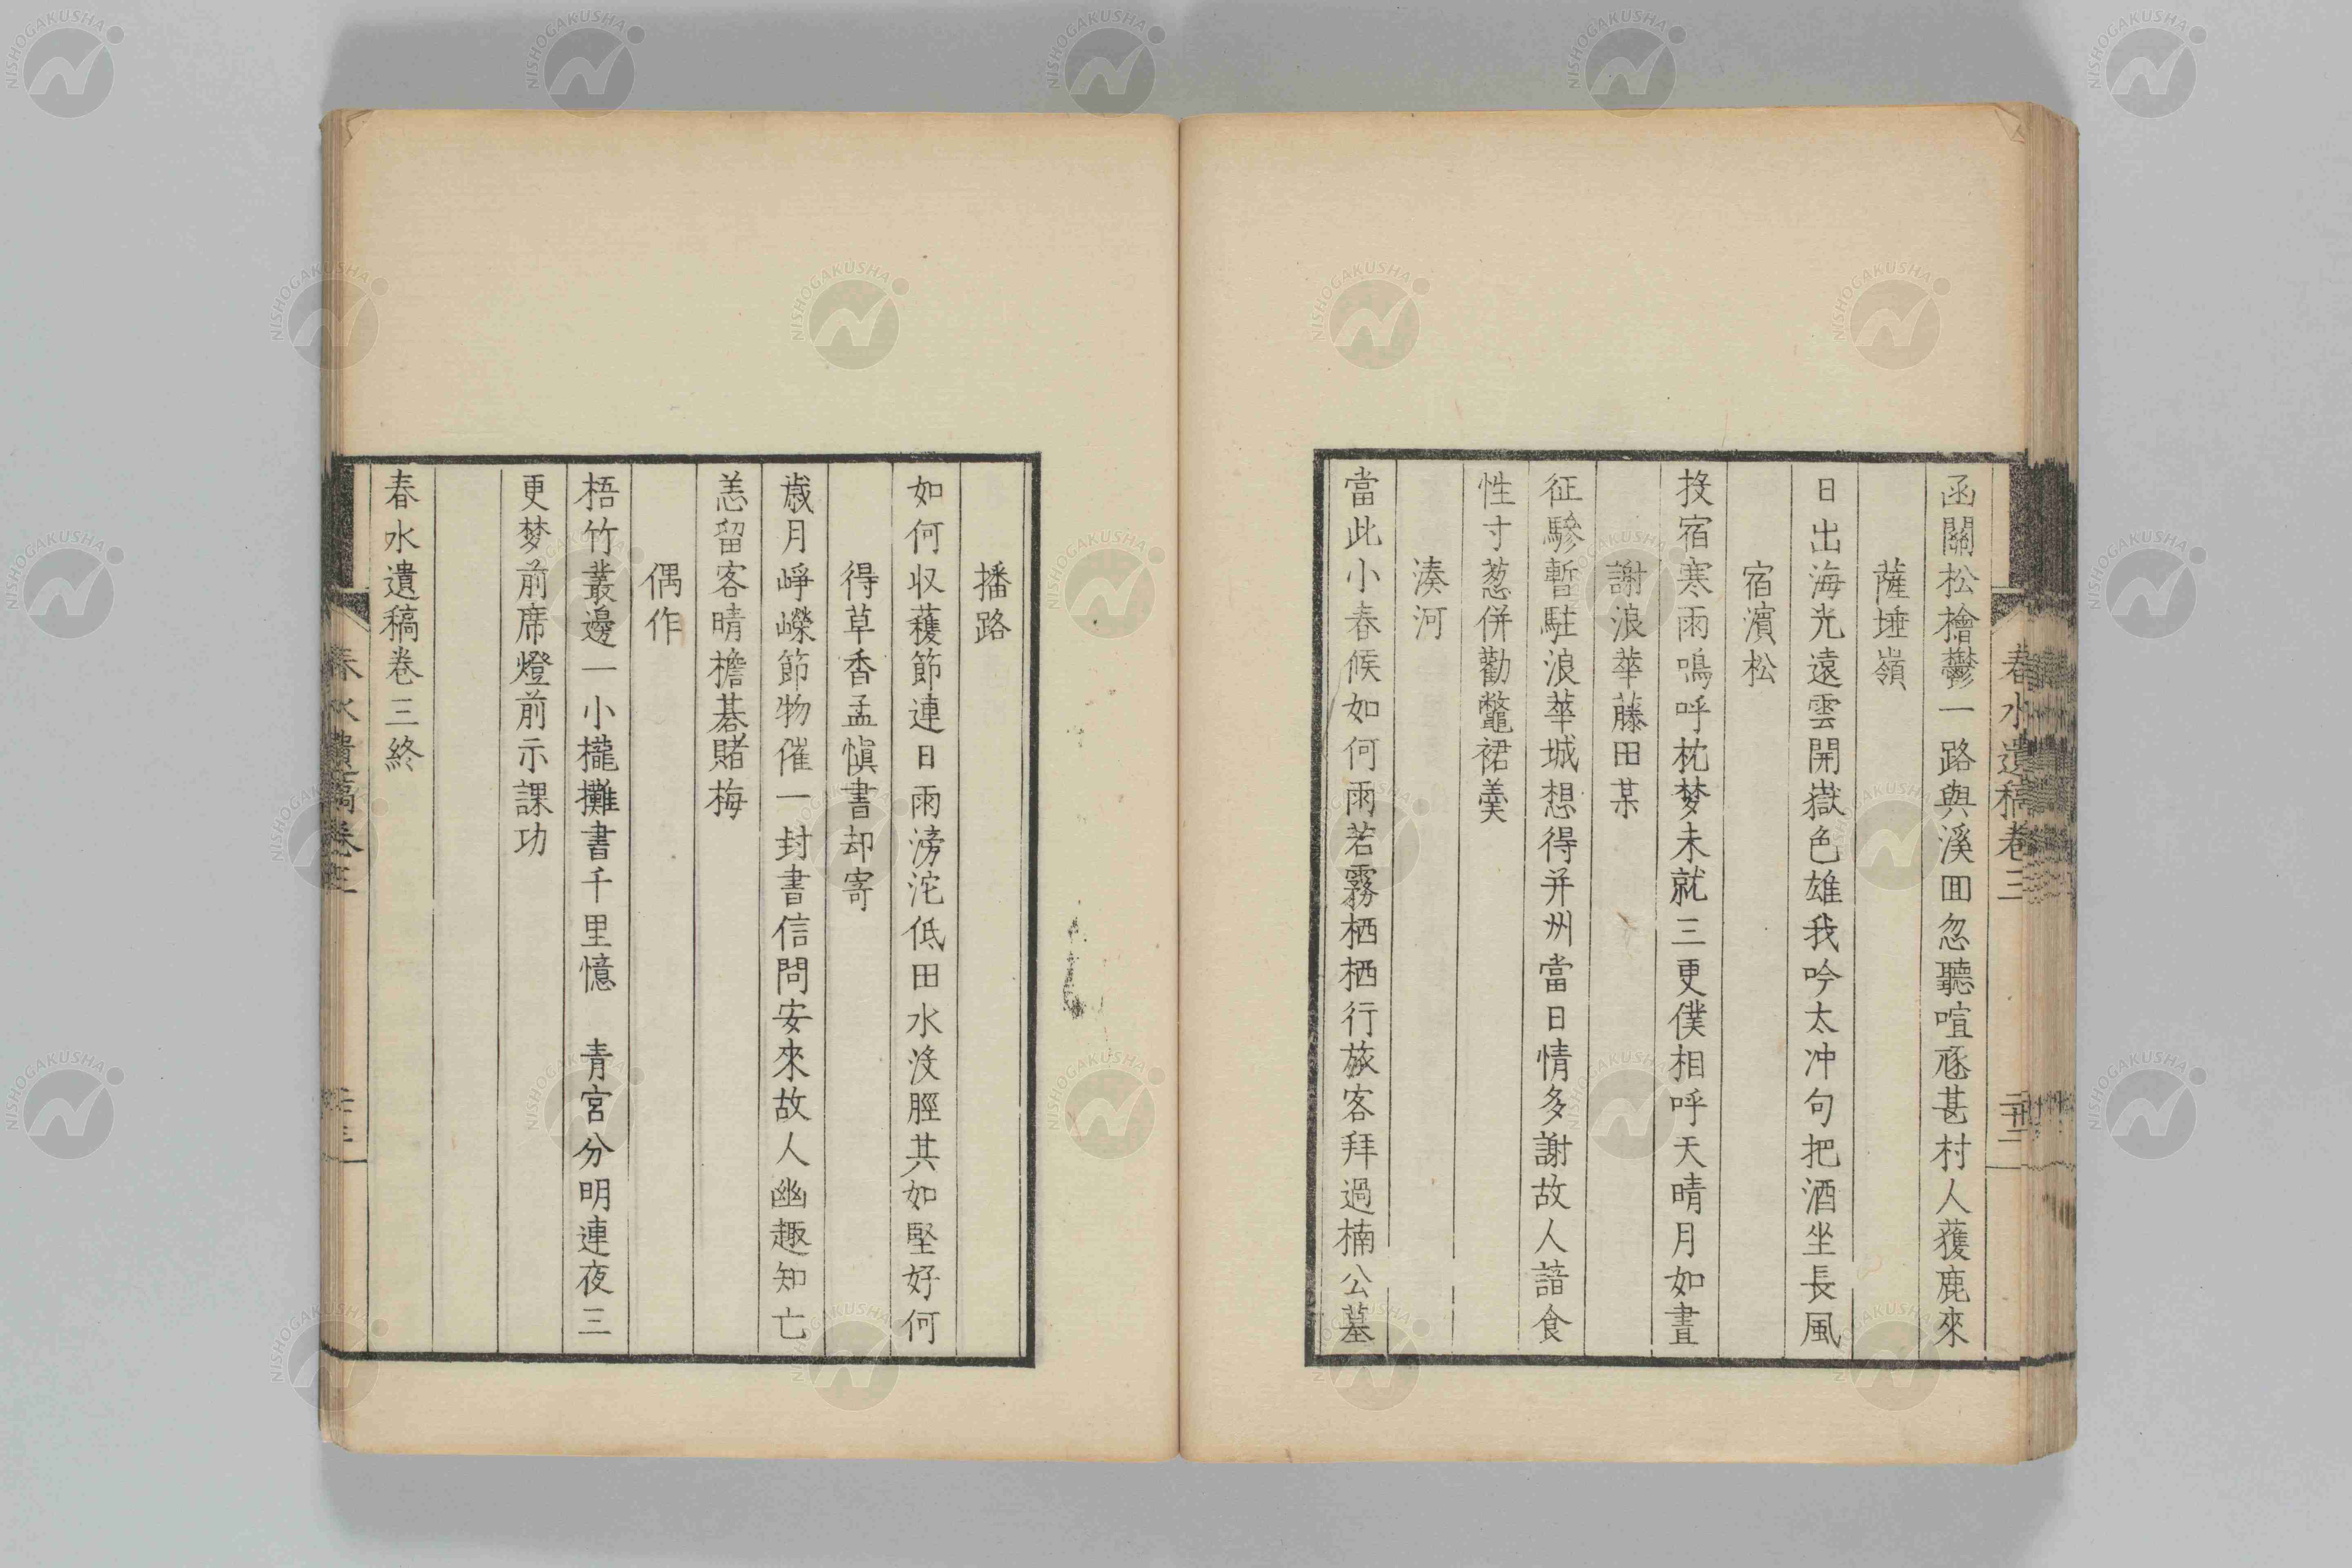 春水遺稿卷三
三十二
函關松檜鬱一路與溪回忽聽喧豗甚村人獲鹿來
薩埵嶺
日出海光遠雲開嶽色雄我吟太冲句把酒坐長風
宿濱松
投宿寒雨鳴呼枕梦未就三更僕相呼天晴月如晝
謝浪華藤田某
征驂暫駐浪華城想得并州當日情多謝故人諳食
性寸葱併勸鼈裙羹
湊河
當此小春候如何雨若霧栖栖行旅客拜過楠公墓
播路
如何収穫節連日雨滂沱低田水沒脛其如堅好何
得草香孟愼書却寄
歲月崢嶸節物催一封書信問安來故人幽趣知亡
恙留客晴檐碁賭梅
偶作
梧竹叢邊一小櫳攤書千里憶　青宮分明連夜三
更梦前席燈前示課功
春水遺稿卷三終
春水遺稿卷三
NISHOGAKUSHA